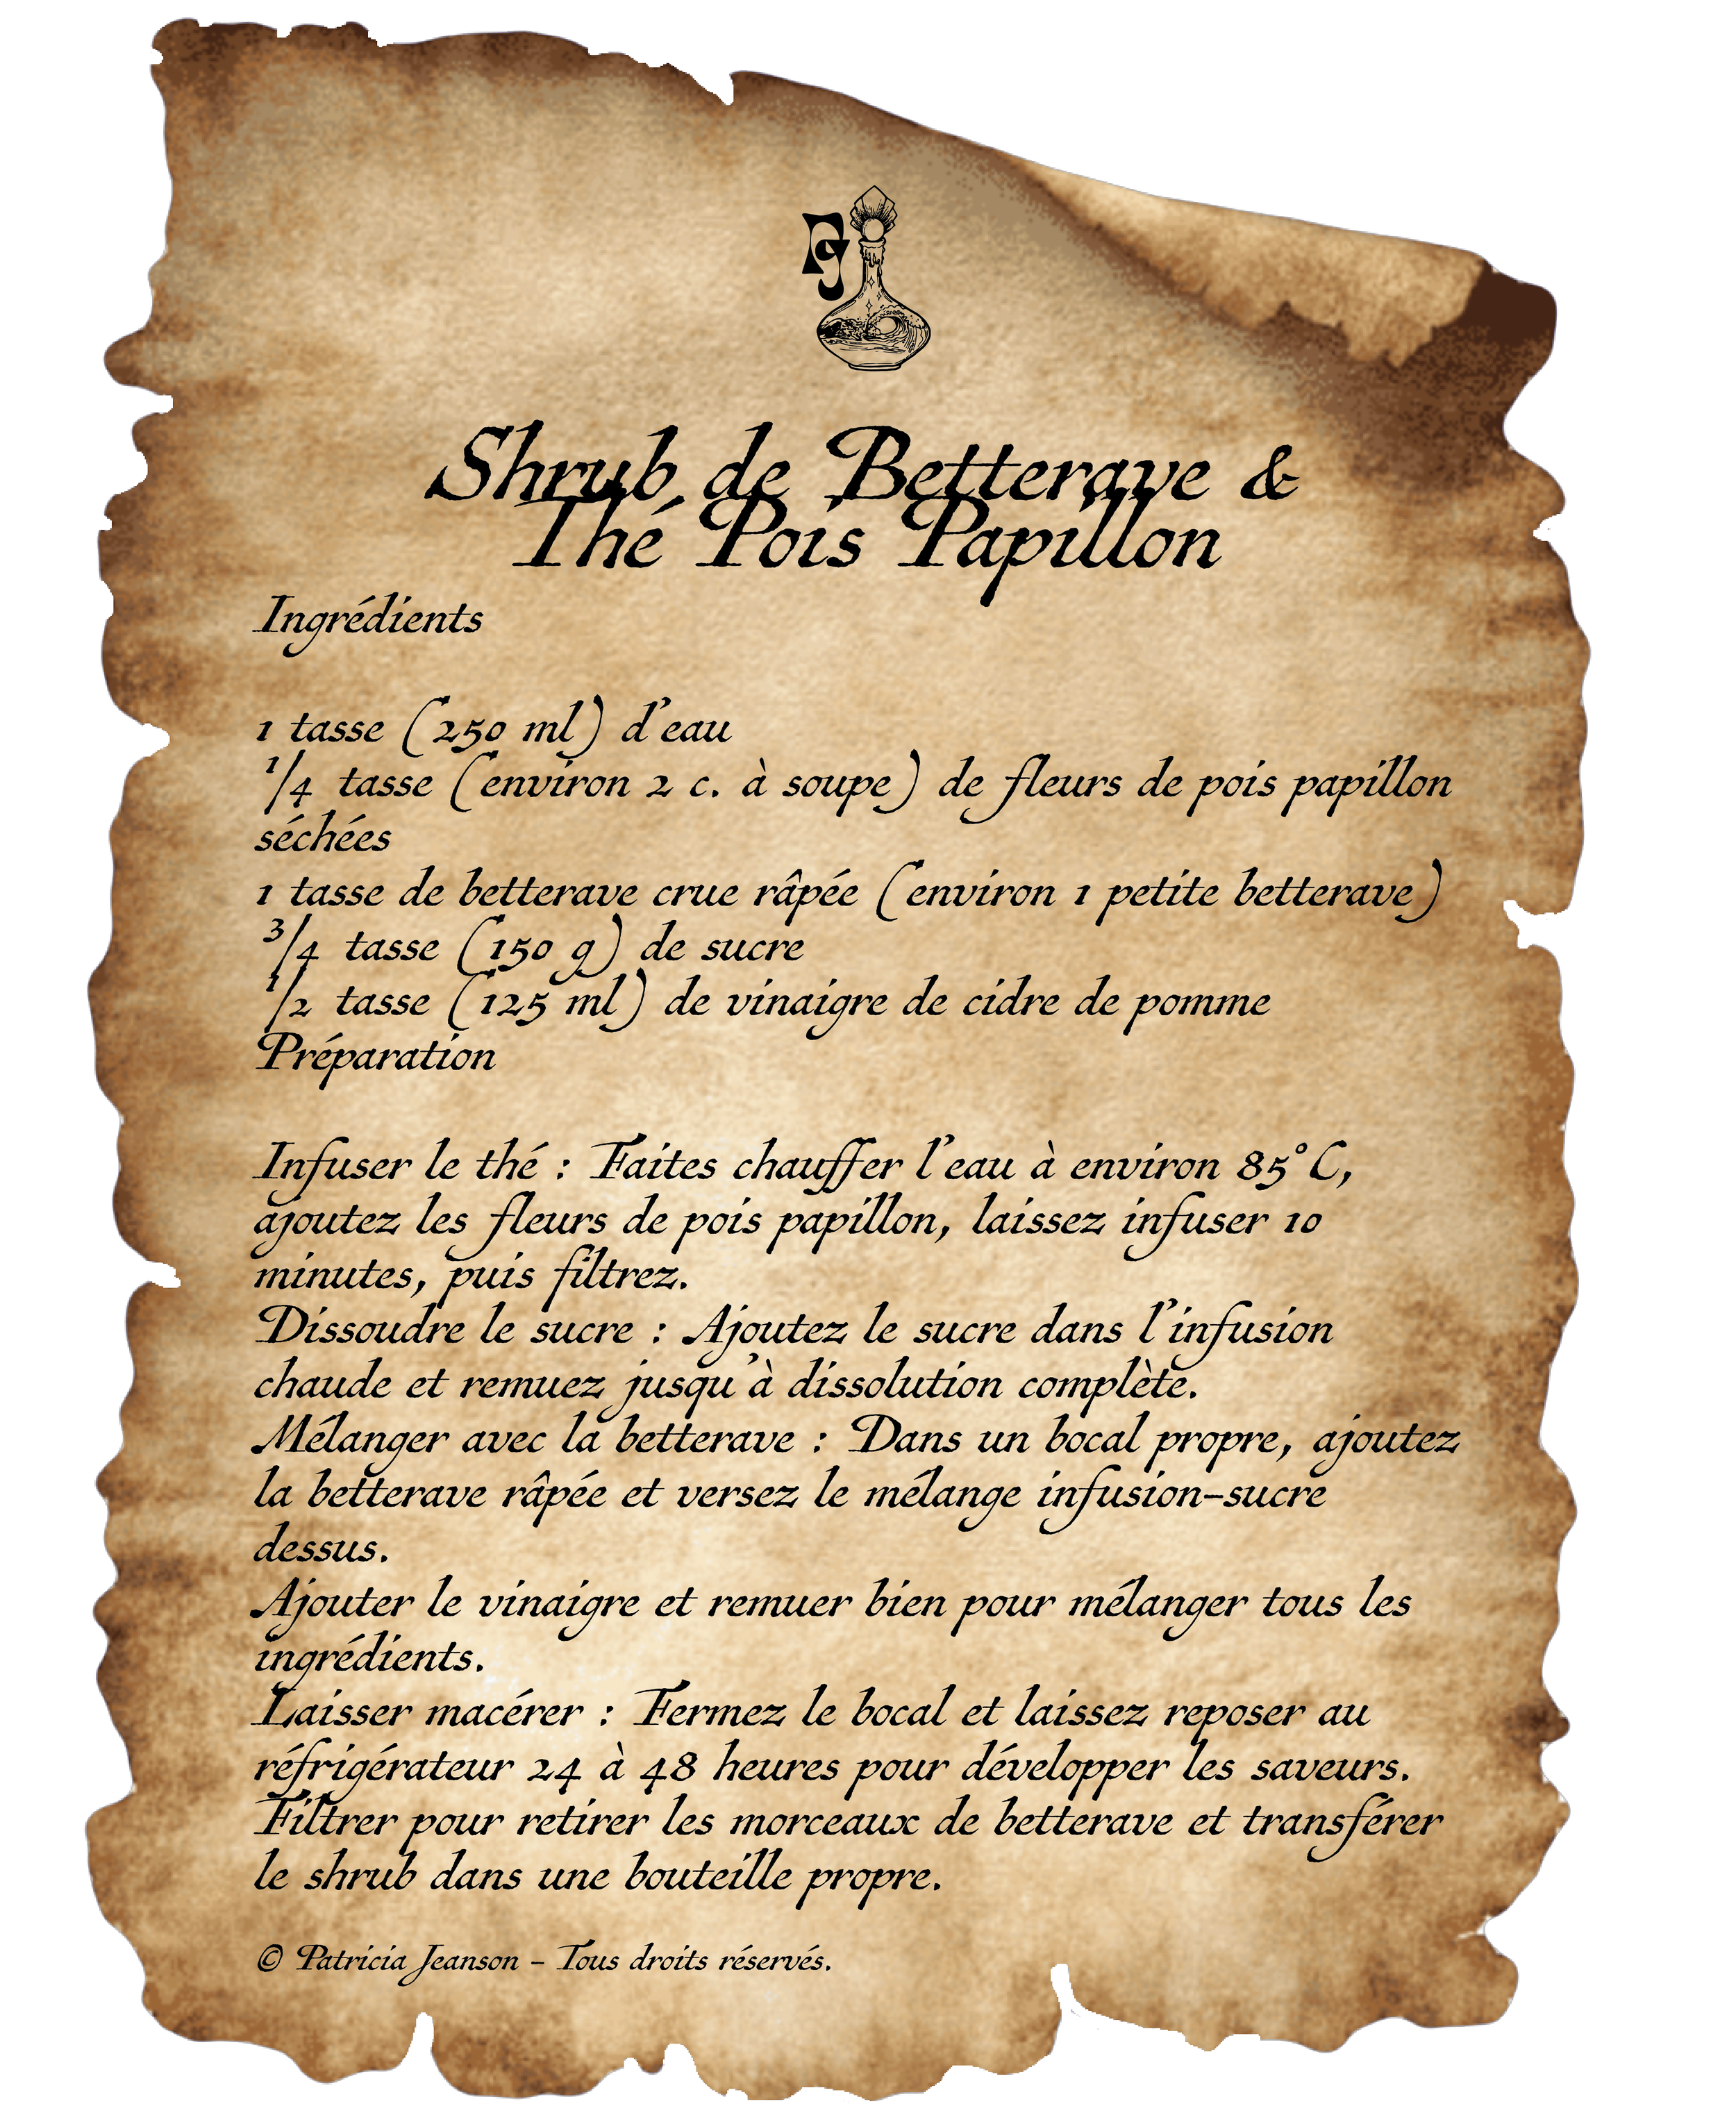 PJ
Shrub de Betterave &
Thé Pois Papillon
Ingrédients
1 tasse (250 ml) d'eau
1/4 tasse (environ 2 c. à soupe) de fleurs de pois papillon
séchées
1 tasse de betterave crue râpée (environ 1 petite betterave)
3/4 tasse (150 g) de sucre
1/2 tasse (125 ml) de vinaigre de cidre de pomme
Préparation
Infuser le thé : Faites chauffer l'eau à environ 85°C,
ajoutez les fleurs de pois papillon, laissez infuser 10
minutes, puis filtrez.
Dissoudre le sucre : Ajoutez le sucre dans l'infusion
chaude et remuez jusqu'à dissolution complète.
Mélanger avec la betterave : Dans un bocal propre, ajoutez
la betterave râpée et versez le mélange infusion-sucre
dessus.
Ajouter le vinaigre et remuer bien pour mélanger tous les
ingrédients.
Laisser macérer : Fermez le bocal et laissez reposer au
réfrigérateur 24 à 48 heures pour développer les saveurs.
Filtrer pour retirer les morceaux de betterave et transférer
le shrub dans une bouteille propre.
© Patricia Jeanson - Tous droits réservés.